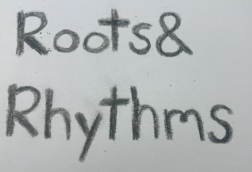 Roots&
Rhythms